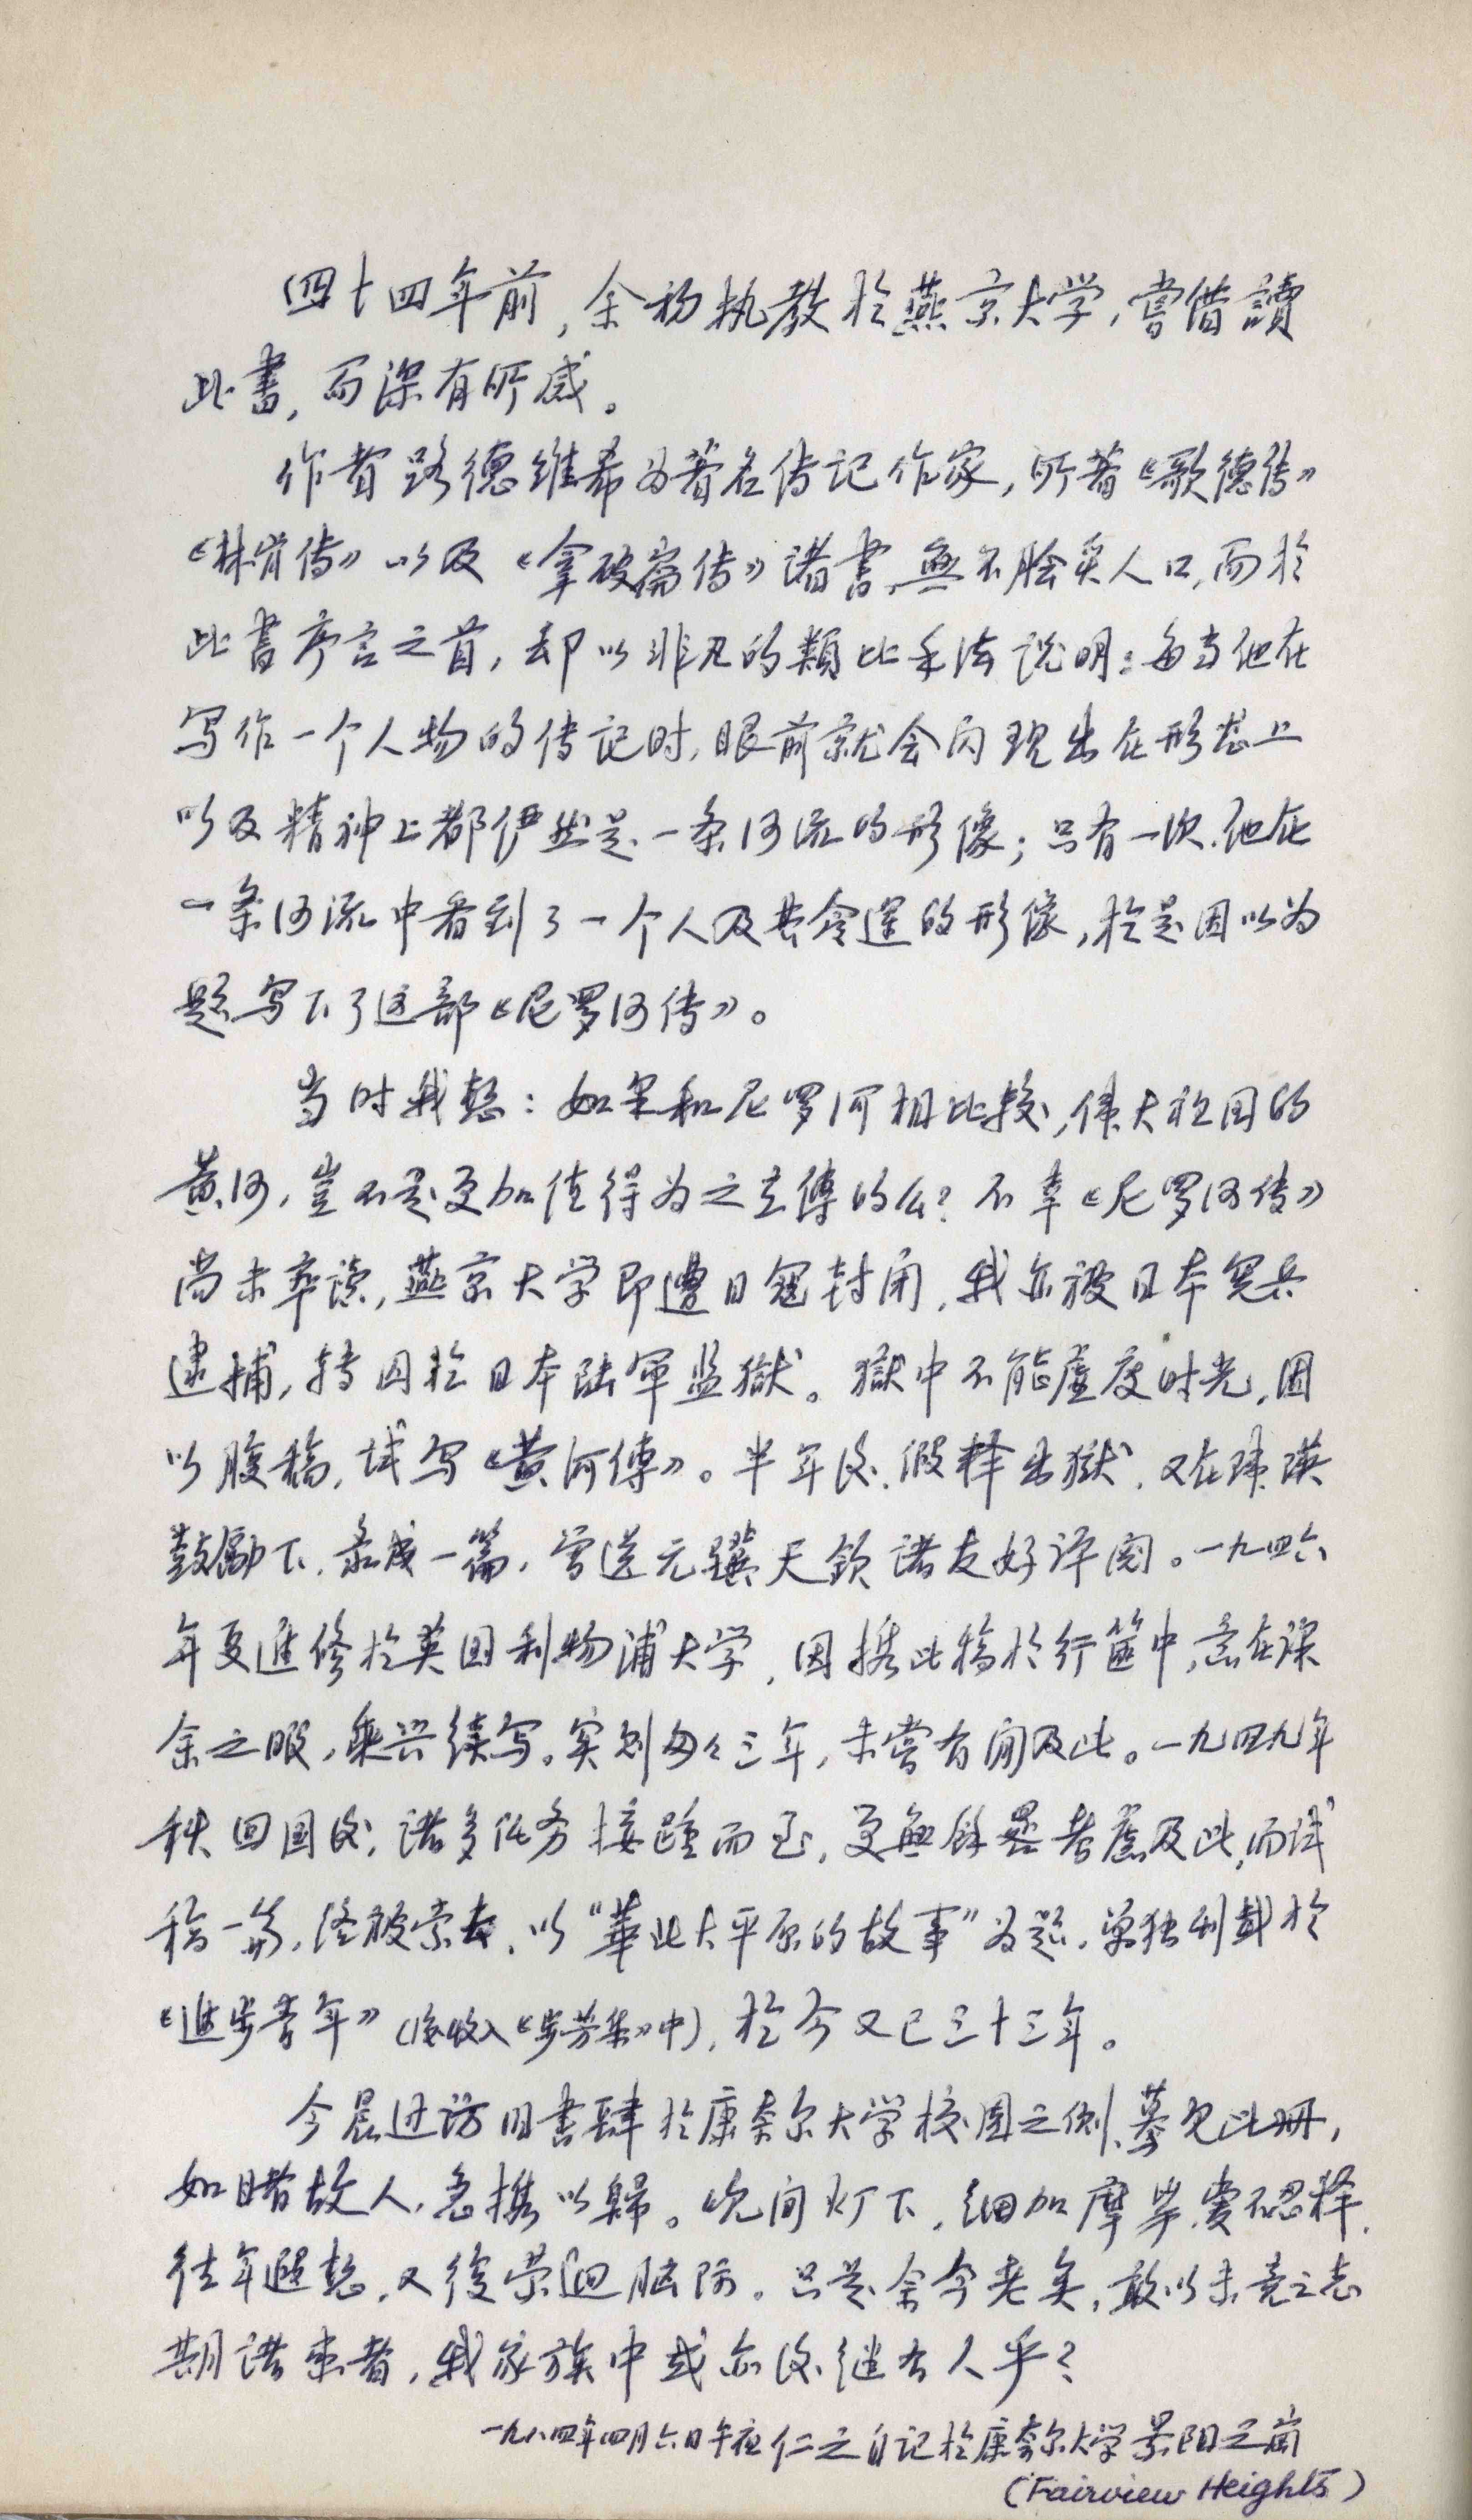 四十四年前，余初执教於燕京大学，嘗借讀
此書，而深有所感。
作者路德維希为著名传记作家，所著《歌德传》
《林肯传》以及《拿破崙传》诸書，無不脍炙人口，而於
此書序言之首，却以非凡的類比手法说明：每当他在
写作一个人物的传记时，眼前就会闪现出在形态上
以及精神上都俨然是一条河流的形像；只有一次，他在
一条河流中看到了一个人及其命運的形像，於是因以为
题写下了这部《尼罗河传》。
当时我想：如果和尼罗河相比较，伟大祖国的
黄河，豈不是更加值得为之立傳的么？不幸《尼罗河传》
尚未卒读，燕京大学即遭日寇封闭，我亦被日本宪兵
逮捕，转囚於日本陆軍监獄。獄中不能虚度时光，因
以腹稿，试写《黄河傳》。半年後，假释出獄，又在瑋瑛
鼓勵下，录成一篇，曾送元驥天欽诸友好评阅。一九四六
年夏進修於英国利物浦大学，因携此稿於行箧中，意在课
余之暇，乘兴续写。实则匆匆三年，未嘗有闲及此。一九四九年
秋回国後，诸多任务接踵而至，更無餘晷考慮及此，而试
稿一篇，终被索去，以“華北大平原的故事”为题，单独刊載於
《進步青年》（後收入《步芳集》中），於今又已三十三年。
今晨过访旧書肆於康奈尔大学校园之侧，蓦见此册，
如睹故人，急携以歸。晚间灯下，细加摩挲，愛不忍释，
往年遐想，又復萦迴脑际。只是余今老矣，敢以未竟之志
期诸来者，我家族中或亦後继有人乎？
一九八四年四月六日午夜仁之自记於康奈尔大学景阳之崗
(Fairview Heights)